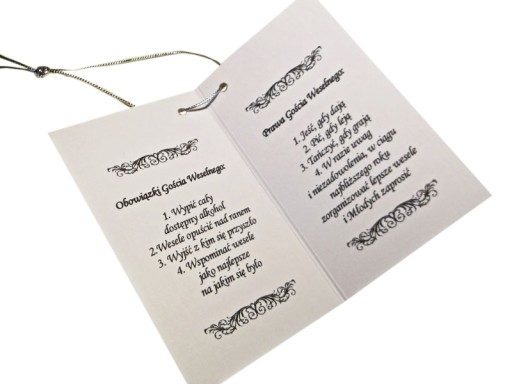 Obowiązki Gościa Weselnego:
1. Wypić cały
dostępny alkohol
2.Wesele opuścić nad ranem
3. Wyjść z kim się przyszło
4. Wspominać wesele
jako najlepsze
na jakim się było
Prawa Gościa Weselnego:
1. Jeść, gdy dają
2. Pić, gdy leją
3. Tańczyć, gdy grają
4. W razie uwag
i niezadowolenia, w ciągu
najbliższego roku
zorganizować lepsze wesele
i Młodych zaprosić